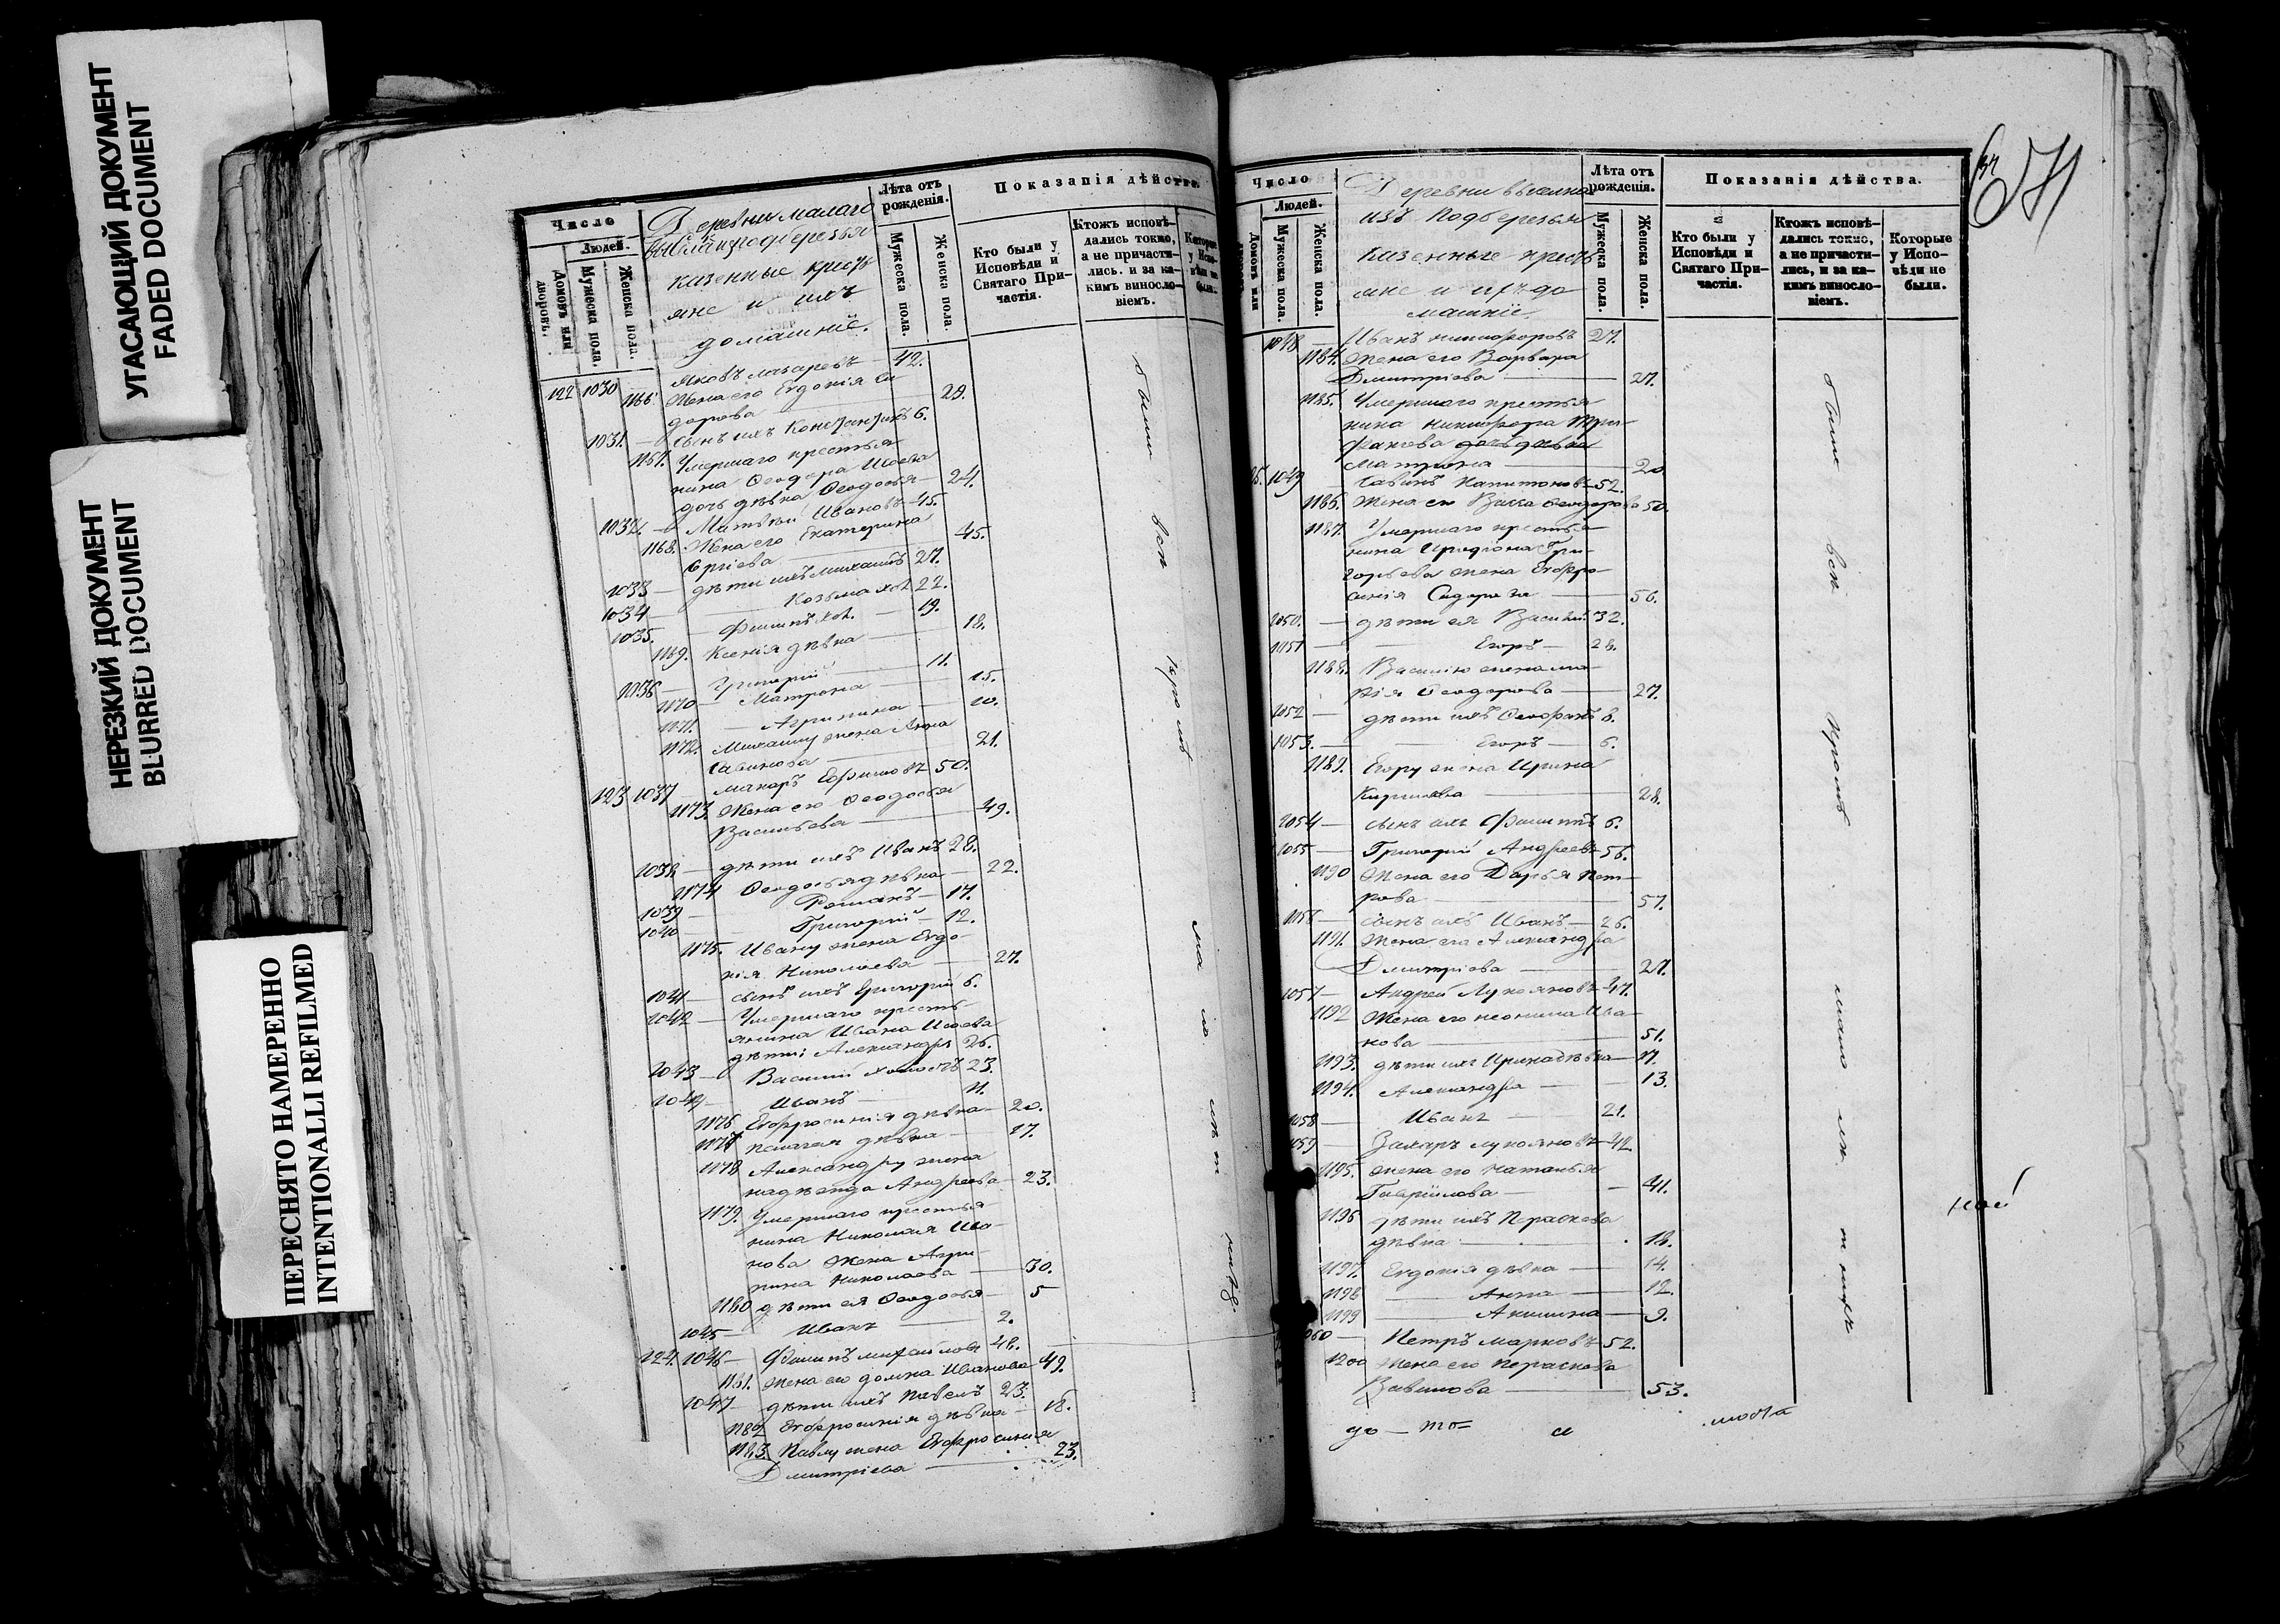 УГАСАЮЩИЙ ДОКУМЕНТ
FADED DOCUMENT
НЕРЕЗКИЙ ДОКУМЕНТ
BLURRED DOCUMENT
ПЕРЕСНЯТО НАМЕРЕННО
INTENTIONALLI REFILMED
Число
Людей.
Домовъ или дворовъ.
Мужеска пола.
Женска пола.
Деревни малаго
казенные кресть
яне и ихъ
домашніе.
Лѣта отъ рожденія.
Мужеска пола.
Женска пола.
Показанія дѣйства.
Кто были у Исповѣди и Святаго Причастія.
Ктожъ исповѣдались токмо, а не причастились. и за какимъ винословіемъ.
Которые у Исповѣди не были.
122 1030 Яковъ Лазаревъ — 42.
1166. Жена его Евдокія Си
дорова — 29.
1031. — сынъ ихъ Константинъ 6.
1167. Умершаго крестья
нина Ѳеодора Исаева
дочь дѣвка Ѳеодосья — 24.
1032. — Матвѣй Ивановъ — 45.
1168. Жена его Екатерина
Сергіева — 45.
1033 — дѣти ихъ Михаилъ 27.
1034 — Козьма хол. 22.
1035. — Филипъ хол. — 19.
1169. Ксенія дѣвка — 18.
1036 — Григорій — 11.
1170 — Матрона — 15.
1171. — Агрипина — 10.
1172. Михаилу жена Анна
Савинова — 21.
123 1037 — Макаръ Ефимовъ 50.
1173. Жена его Ѳеодосья
Васильева — 49.
1038 — дѣти ихъ Иванъ 28.
1174 Ѳеодосья дѣвка — 22.
1039 — Романъ — 17.
1040 — Григорій — 12.
1175. Ивану жена Евдо-
кія Николаева — 27.
1041 — сынъ ихъ Григорій 6.
1042 — Умершаго кресть-
янина Ивана Исаева
дѣти: Александръ 26.
1043 — Василій холостъ 23.
1044 — Иванъ — 11.
1176 Евфросинія дѣвка — 20.
1177 Пелагея дѣвка — 17.
1178 Александру жена
Надежда Андреева — 23.
1179. Умершаго крестья
нина Николая Ива-
нова жена Агри-
пина Николаева — 30.
1180 дѣти ея Ѳеодосья — 5
1045 — Иванъ — 2.
124. 1046 — Филипъ Михайловъ 48.
1181. Жена его Домна Иванова 49.
1047 — дѣти ихъ Павелъ 23.
1182 Евфросинія дѣвка — 18.
1183. Павлу жена Евфросинія
Дмитріева — 23.
были всѣ
Число
Людей.
Домовъ или
Мужеска пола.
Женска пола.
Деревни выселка
изъ Подберезья
казенные кресть
яне и ихъ до
машніе.
Лѣта отъ рожденія.
Мужеска пола.
Женска пола.
Показанія дѣйства.
Кто были у Исповѣди и Святаго Причастія.
Ктожъ исповѣдались токмо, а не причастились, и за какимъ винословіемъ.
Которые у Исповѣди не были.
1048 — Иванъ Никифоровъ 27.
1184. Жена его Варвара
Дмитріева — 27.
1185. Умершаго крестья
нина Никифора Три
фанова дочь дѣвка
Матрона — 20
1049 Савинъ Капитоновъ — 52.
1186. Жена его Васса Ѳеодорова 50.
1187. Умершаго крестья
нина Иродіона Гри-
горьева жена Евфро-
синія Сидорова — 56.
1050. — дѣти ея Василій 32.
1051 — Егоръ — 28.
1188. Василію жена Ма-
рія Ѳеодорова — 27.
1052 — дѣти ихъ Ѳеофанъ 8.
1053. — Егоръ — 6.
1189. Егору жена Ирина
Кирилова — 28.
1054 — сынъ ихъ Филипъ 6.
1055 — Григорій Андреевъ — 56.
1190 Жена его Дарья Пет-
рова — 57.
1056 — сынъ ихъ Иванъ — 26.
1191. Жена его Александра
Дмитріева — 27.
1057 — Андрей Лукояновъ — 47.
1192 Жена его Неонила Ива-
нова — 51.
1193. дѣти ихъ Ирина дѣвка — 17.
1194. Александра — 13.
1058 — Иванъ — 21.
1059 — Захаръ Лукояновъ — 42.
1195. Жена его Наталья
Гаврилова — 41.
1196 дѣти ихъ Параскева
дѣвка — 18.
1197. Евдокія дѣвка — 14.
1198 — Анна — 12.
1199 — Акилина — 9.
1060 — Петръ Марковъ — 52.
1200 Жена его Параскева
Вавилова — 53.
были всѣ